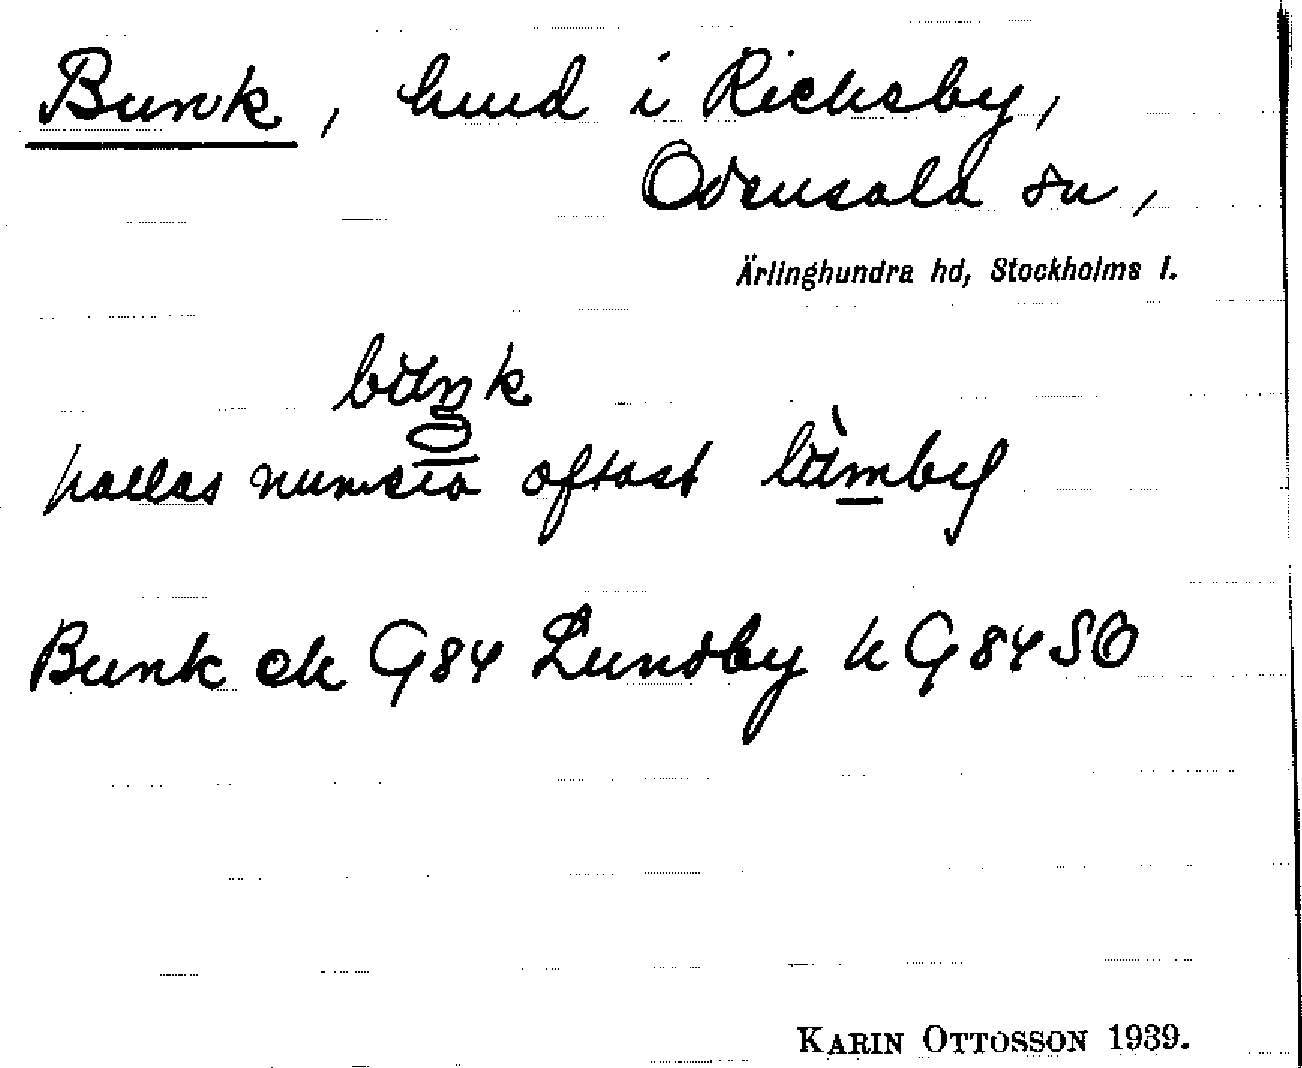 Bunk, hmd i Ricksby,
Odensala sn,
Ärlinghundra hd, Stockholms l.
kallas numera oftast
Bunk ek G84 Lundby h G84SO
KARIN OTTOSSON 1939.